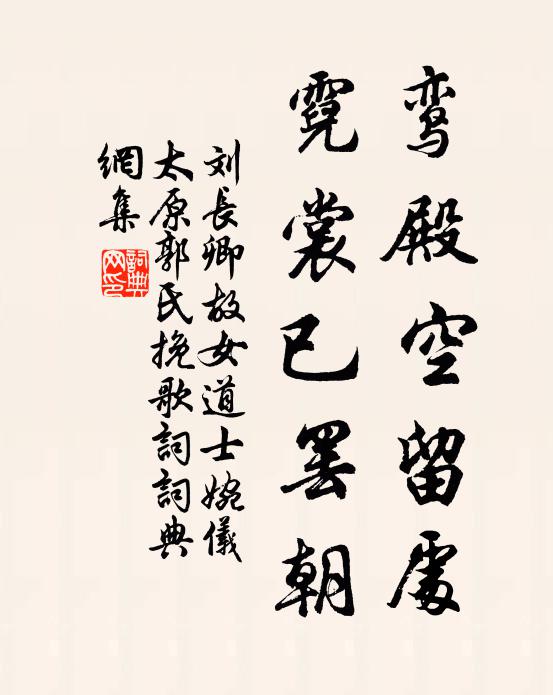 鸾殿空留處
霓裳已罢朝
刘長卿故女道士婉儀
太原郭氏挽歌詞詞典
網集
詞典網印